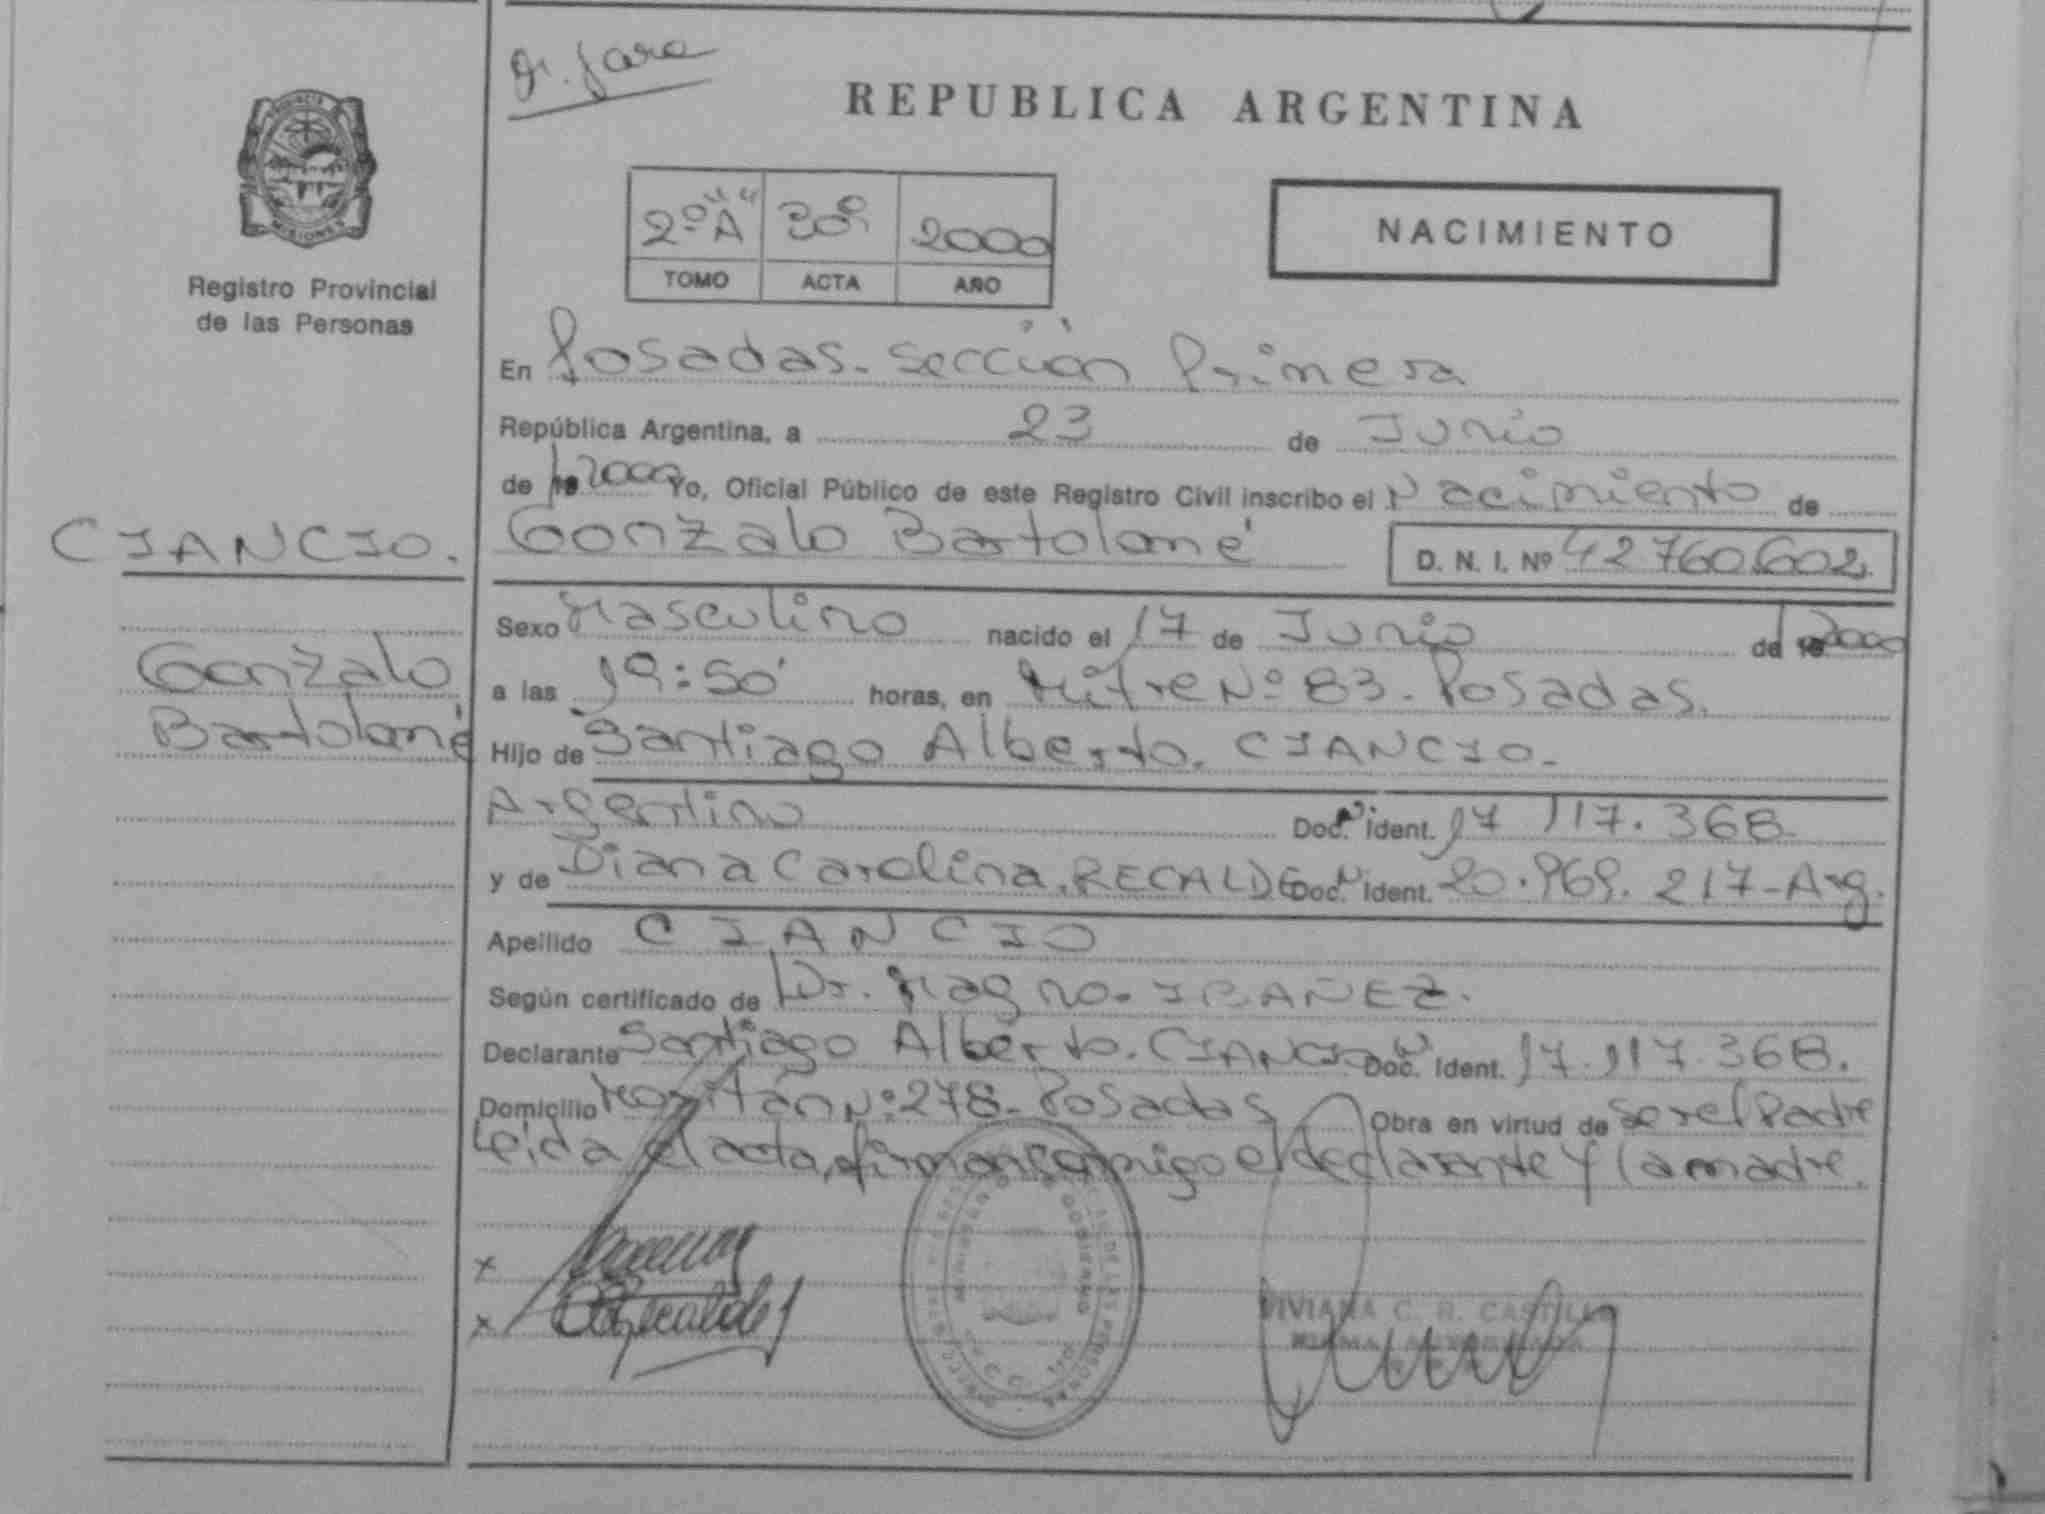 REPUBLICA ARGENTINA
MISIONES
Registro Provincial
de las Personas
2º "A" 309 2000
TOMO ACTA AÑO
NACIMIENTO
En Posadas. Sección Primera
República Argentina, a 23 de Junio
de 2000 Yo, Oficial Público de este Registro Civil inscribo el Nacimiento de
CIANCIO. Gonzalo Bartolomé D. N. I. Nº 42760.602
Sexo Masculino nacido el 17 de Junio de 2000
Gonzalo
Bartolomé
a las 19:50' horas, en Mitre Nº 83. Posadas.
Hijo de Santiago Alberto. CIANCIO.
Argentino Doc. Ident. 17 117. 368.
y de Diana Carolina. RECALDE Doc. Ident. 20.969. 217-Arg.
Apellido CIANCIO
Según certificado de Dr. Magno. IBAÑEZ.
Declarante Santiago Alberto. CIANCIO Doc. Ident. 17.117.368.
Domicilio Nº 278- Posadas Obra en virtud de ser el Padre
Leida el acta, firman conmigo el declarante y la madre.
x
x
VIVIANA C. R. CASTILLO